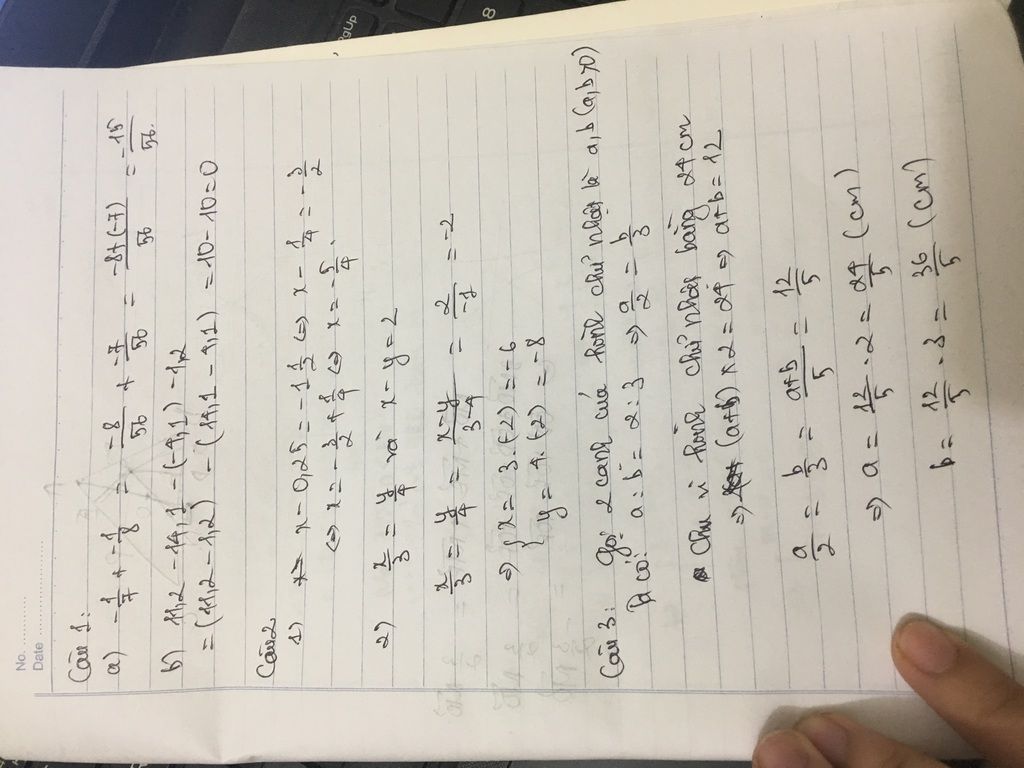 PgUp
8
No. ............
Date ......................
Câu 1:
a) -1/7 + -1/8 = -8/56 + -7/56 = -8+(-7)/56 = -15/56.
b) 11,2 - 14,1 - (-4,1) - 1,2
= (11,2 - 1,2) - (14,1 - 4,1) = 10 - 10 = 0
Câu 2
1) x - 0,25 = -1 1/2 <=> x - 1/4 = -3/2
<=> x = -3/2 + 1/4 <=> x = -5/4.
2) x/3 = y/4 và x - y = 2
x/3 = y/4 = x-y/3-4 = 2/-1 = -2
=> { x = 3.(-2) = -6
y = 4.(-2) = -8
Câu 3: Gọi 2 cạnh của hình chữ nhật là a, b (a, b >0)
Ta có: a : b = 2 : 3 => a/2 = b/3
Chu vi hình chữ nhật bằng 24 cm
=> (a+b) x 2 = 24 => a+b = 12
a/2 = b/3 = a+b/5 = 12/5
=> a = 12/5 . 2 = 24/5 (cm)
b = 12/5 . 3 = 36/5 (cm)